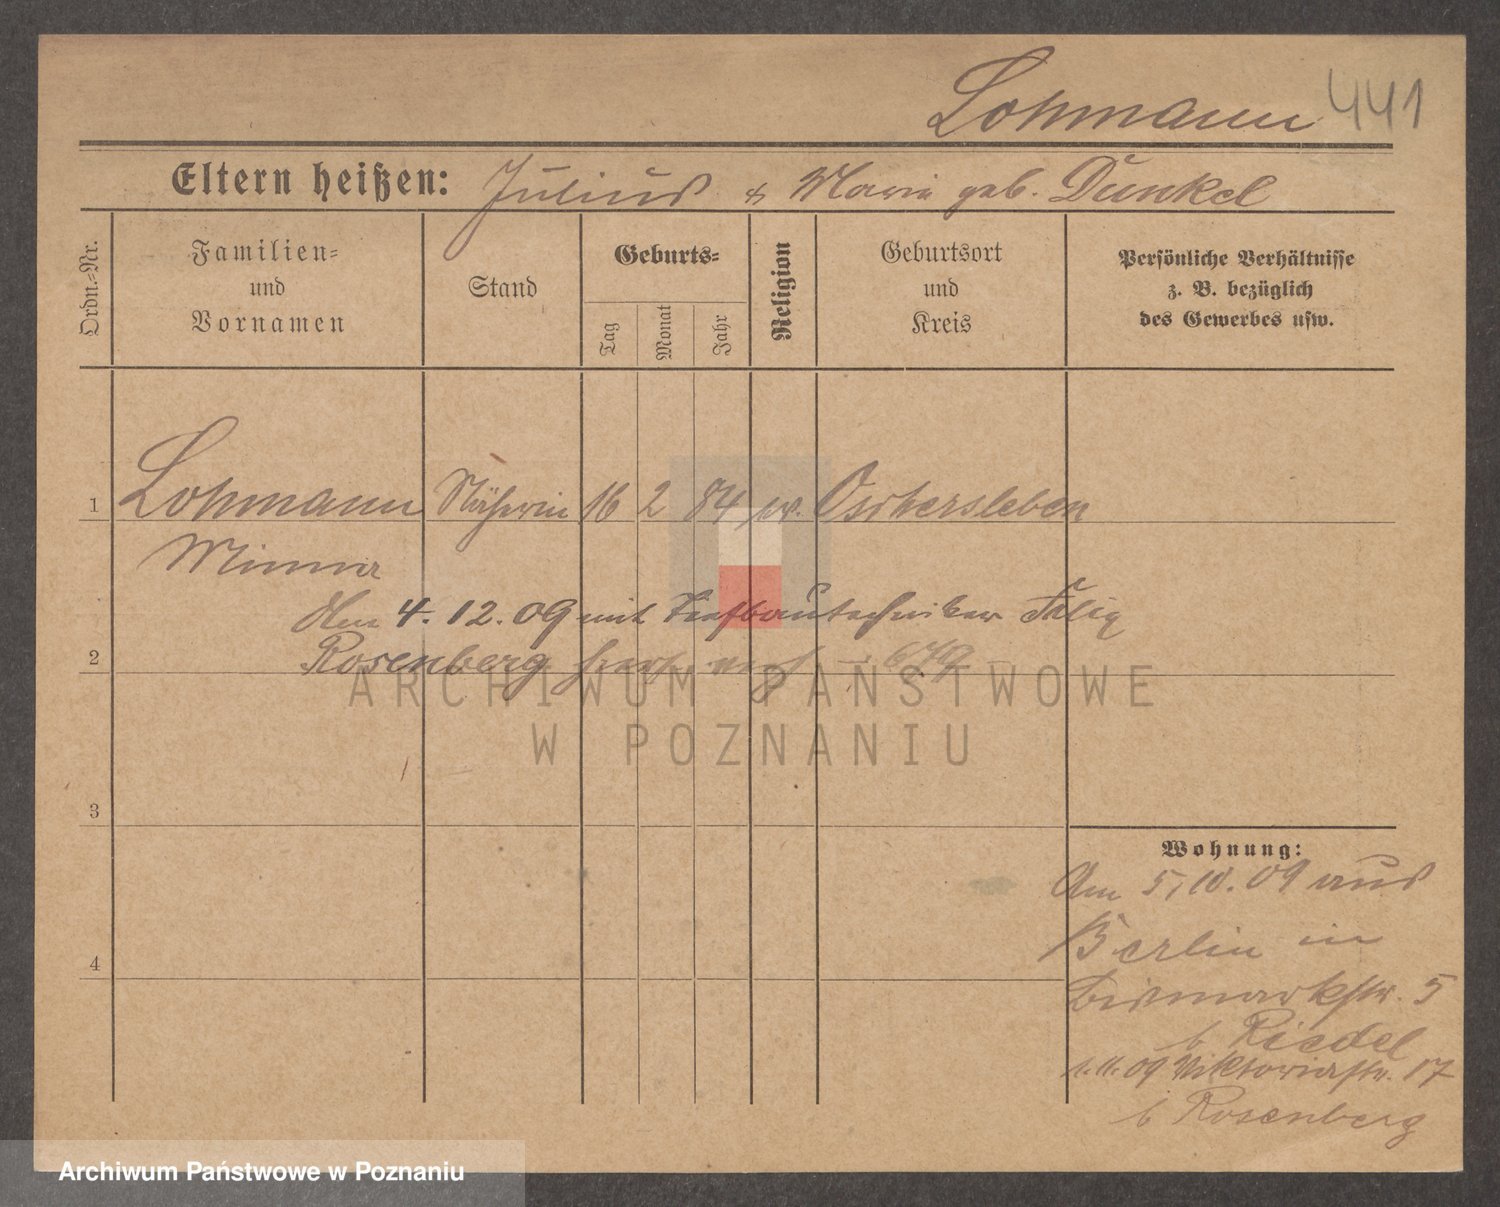 Lohmann 441
Eltern heißen: Julius & Marie geb. Dunkel
Ordn.-Nr.
Familien-
und
Vornamen
Stand
Geburts-
Tag
Monat
Jahr
Religion
Geburtsort
und
Kreis
Persönliche Verhältnisse
z. B. bezüglich
des Gewerbes usw.
1 Lohmann Näherin 16 2 84 ev. Oschersleben
Minna
4.12.09 mit Tiefbautechniker Felix
2 Rosenberg
ARCHIWUM PAŃSTWOWE
W POZNANIU
3
4
Wohnung:
Am 5.10.09 aus
Berlin in
Bismarkstr. 5
b Riedel
1.11.09 Viktoriastr. 17
b Rosenberg
Archiwum Państwowe w Poznaniu